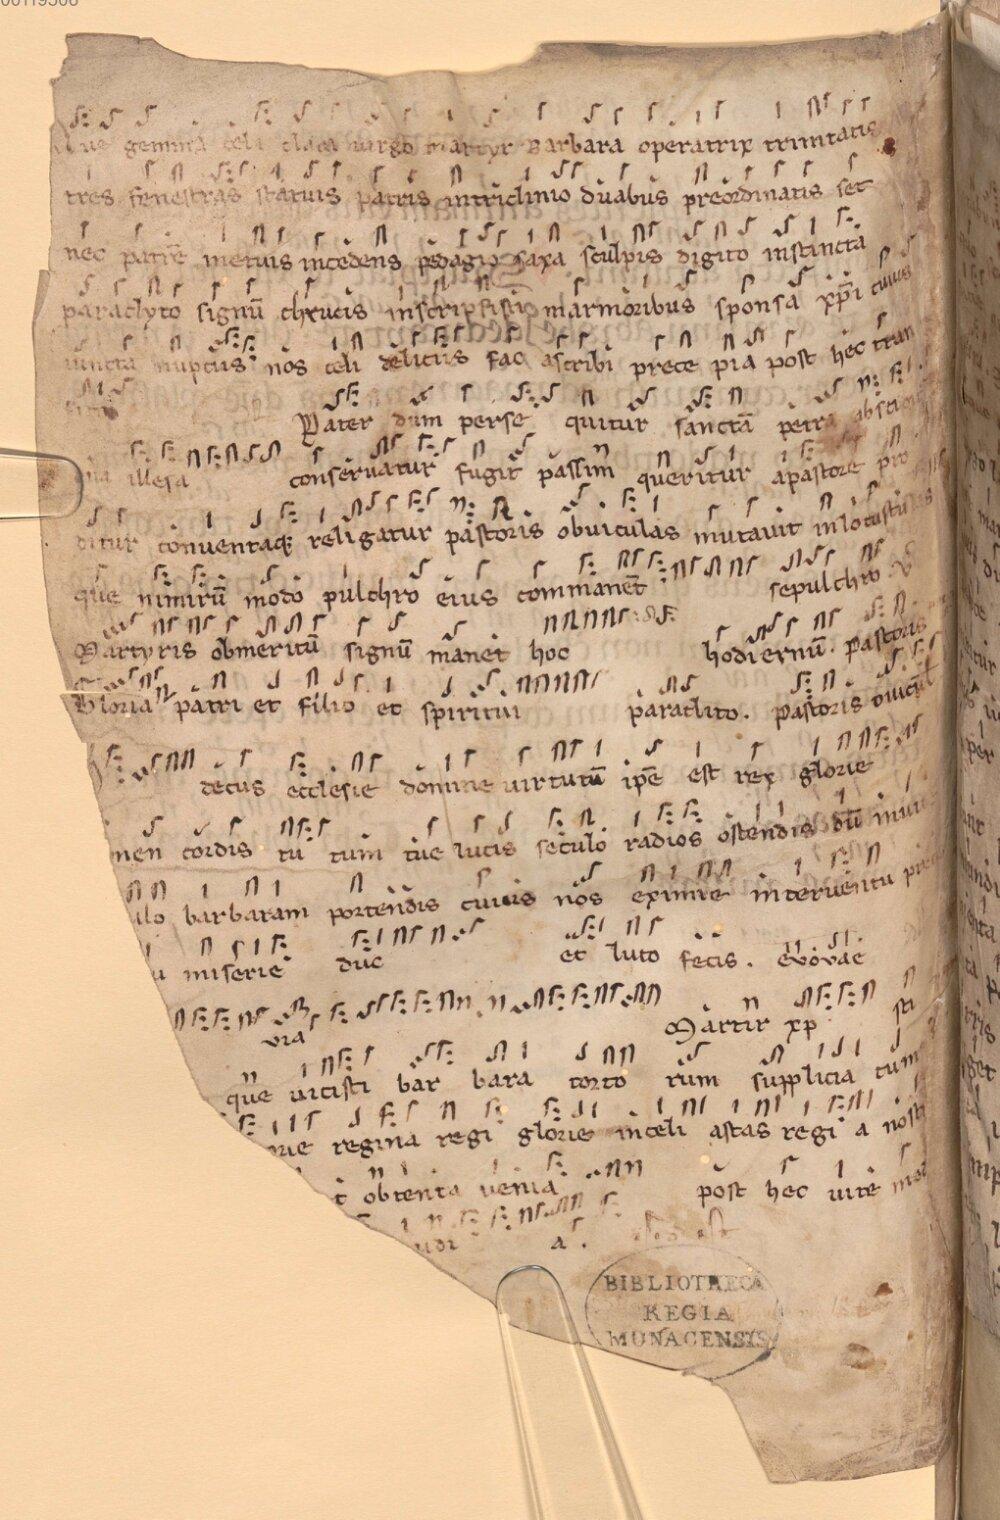 gemma celi clara virgo martyr Barbara operatrix trinitatis
tres fenestras statuis patris intriclinio duabus preordinatis set
nec patrē metuis incedens pedagio saxa sculpis digito instincta
paraclyto signū chrucis inscripsisti marmoribus sponsa xp̄i cuius
iuncta nuptiis nos celi deliciis fac ascribi prece pia post hec tran
Pater dum perse quitur sanctā petra absci
illesa conseruatur fugit passim queritur apastore pro
ditur conuentaq; religatur pastoris obuiculas mutauit inlocustulas
que nimirū modo pulchro eius commanet sepulchro
Martyris obmeritū signū manet hoc hodiernū. pastoris
Gloria patri et filio et spiritui paraclito. pastoris ouicul
decus ecclesie domine virtutū ipse est rex glorie
men cordis tu cum tue lucis seculo radios ostendis dū
ilo barbaram portendis cuius nos eximie interuentu
miserie duc et luto fecis. euouae
via Martir xp sti
que vicisti bar bara torto rum supplicia cum
regina regi glorie inceli astas regi a nost
obtenta uenia post hec uite
a.
BIBLIOTHECA
REGIA
MONACENSIS